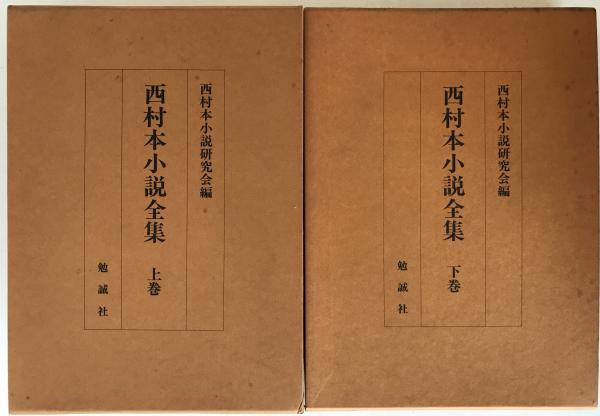 西村本小説研究会編
西村本小説全集 上巻
勉誠社
西村本小説研究会編
西村本小説全集 下巻
勉誠社